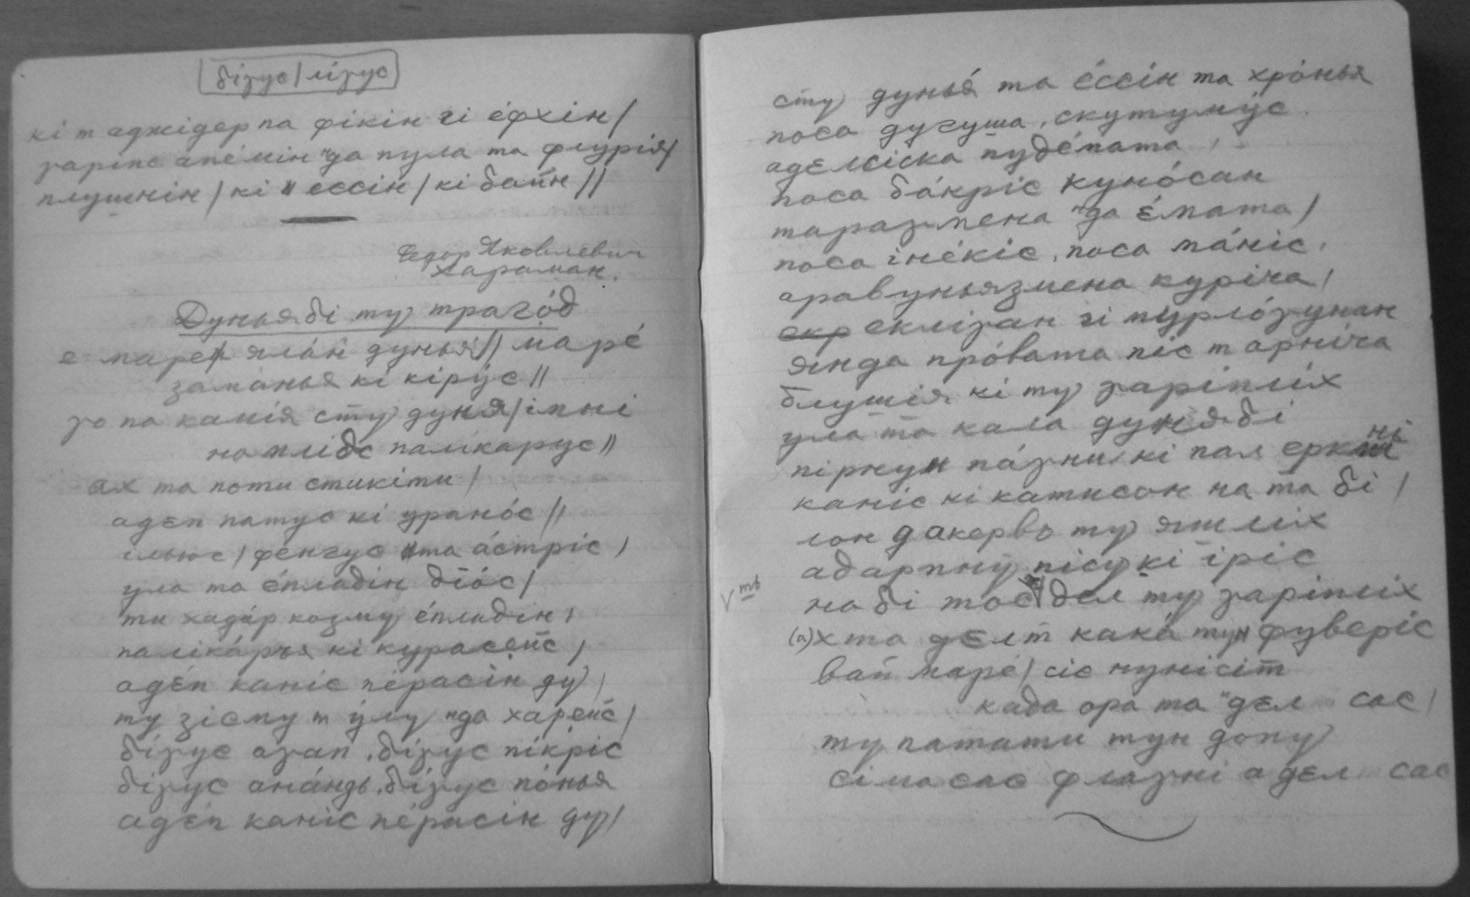 бізус/лізус
кі т аджідер па фікін гі е́фхін/
заріпс апе́мін нда пула та флурія/
плушнін/ кі н ессін/ кі байн//
Федор Яковлевич
Хараман.
Дунья бі ту траго́д
е маре/ яла́н дунья́// маре́
зама́нья кі кіру́с//
го па камія сту дуня/імні
на плідс палікарус//
ах та поти стикіти/
адеп патус кі урано́с//
ільюс/ фенгус та а́стріс,
ула та е́пладін біо́с/
ти хада́р козму е́пладін,
паліка́рья кі курасейс,
аде́п каніс пе́расін ду,
ту зісму т у́лу нда харейс/
бі́зус азап, бі́зус пі́кріс
бі́зус ана́ндь, бі́зус по́нья
аде́п каніс пе́расін ду/
сту дунья́ та е́ссін та хро́нья
поса дугуша, скутуму́с.
аделсіска пуде́мата,
поса ба́кріс куно́сан
таразмена нда е́мата/
поса іне́кіс, поса ма́ніс,
аравуньязмена куріча,
еклізан гі турло́зунан
янда про́вата піс т арніча
блушія кі ту заріпліх
ула та кала дуня бі
пірну́н па́зни, кі пал еркні
каніс кі катисон на та бі/
лон дакервь ту яшліх
адарпну пісу кі іріс
на бі тос дел ту заріпліх
V ть
(а)х та делт кака́ тун фуверіс
вай маре́/ сіс нунісіт
када ора та нде́л сас/
ту патати тун допу
сімасас флазні а дел сас